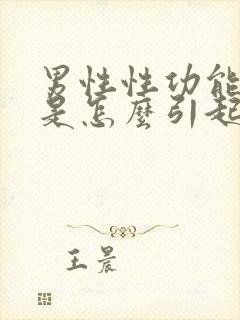 男性性功能
是怎麼引起
王晨